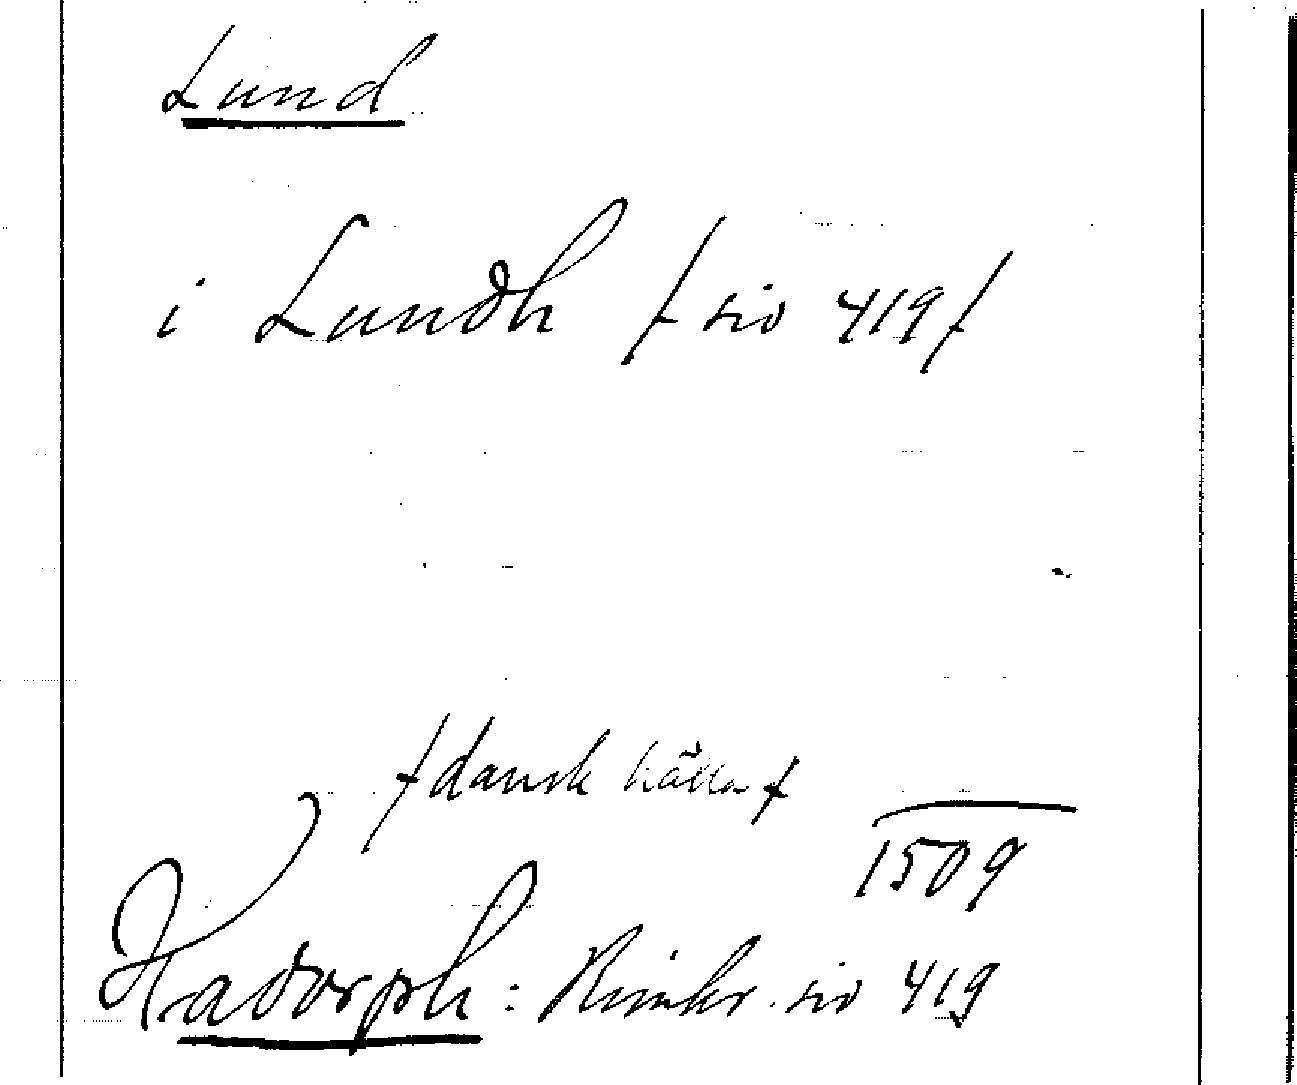 Lund
i Lundh / sid 419 /
/ dansk källa /
1509
Hadorph: Rimkr. sid 419